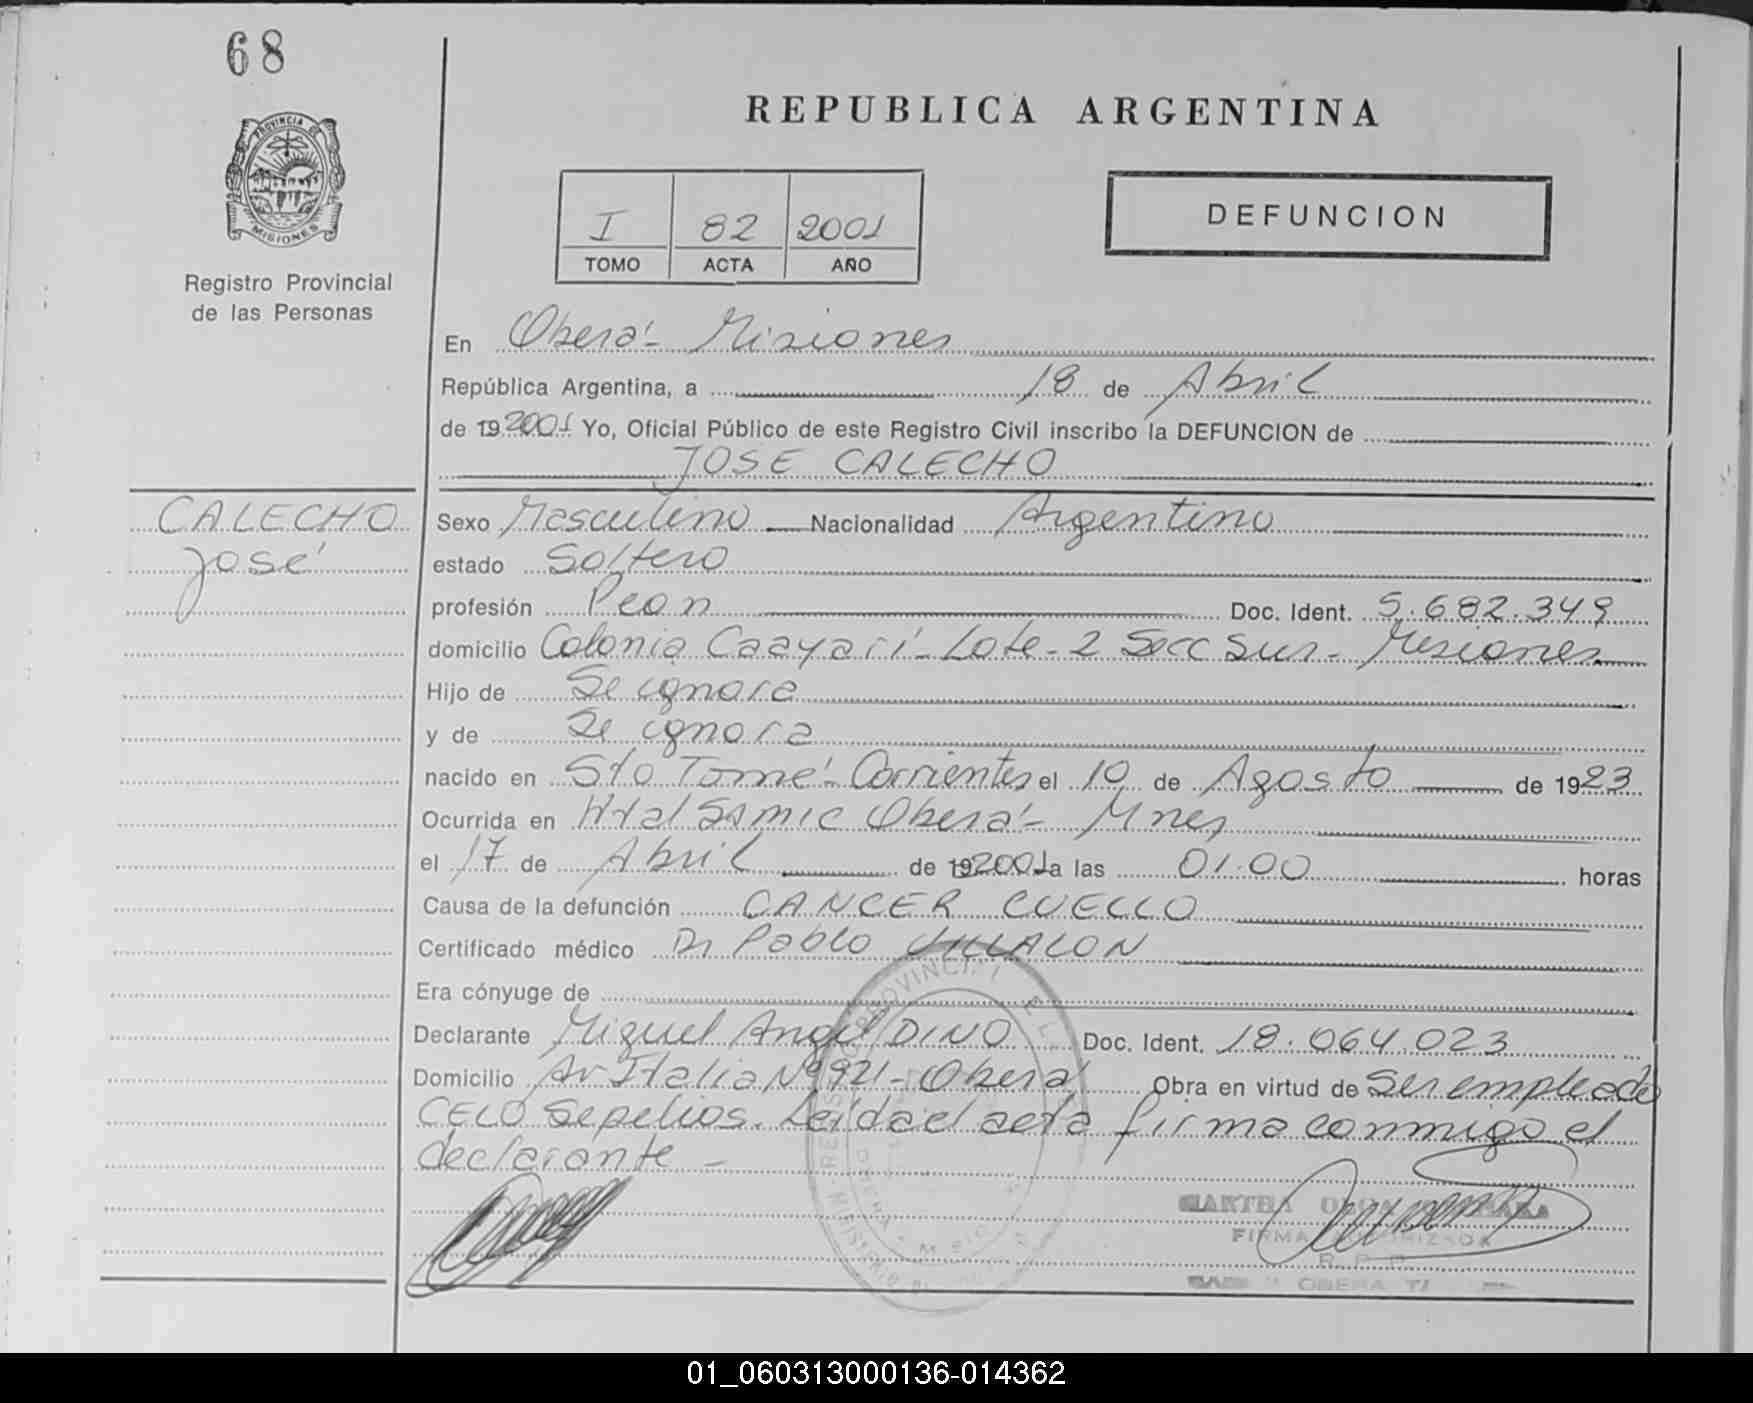 68
REPUBLICA ARGENTINA
PROVINCIA DE
MISIONES
I 82 2001
TOMO ACTA AÑO
DEFUNCION
Registro Provincial
de las Personas
En Oberá - Misiones
República Argentina, a 18 de Abril
de 19 2001 Yo, Oficial Público de este Registro Civil inscribo la DEFUNCION de
JOSE CALECHO
CALECHO
José
Sexo Masculino Nacionalidad Argentino
estado Soltero
profesión Peon Doc. Ident. 5.682.349
domicilio Colonia Caayarí - Lote - 2 Secc Sur - Misiones
Hijo de Se ignora
y de Se ignora
nacido en Sto Tomé - Corrientes el 10 de Agosto de 1923
Ocurrida en Htal Samic Oberá - Mnes
el 17 de Abril de 19 2001 a las 01.00 horas
Causa de la defunción CANCER CUELLO
Certificado médico Dr Pablo VILLALON
Era cónyuge de
Declarante Miguel Angel DINO Doc. Ident. 18.064.023
Domicilio Av Italia Nº 921 - Oberá Obra en virtud de Ser empleado
CELO Sepelios. Leída el acta firma conmigo el
declarante -
MARTHA
FIRMA AUTORIZADA
R. P. P.
OBERA
01_060313000136-014362